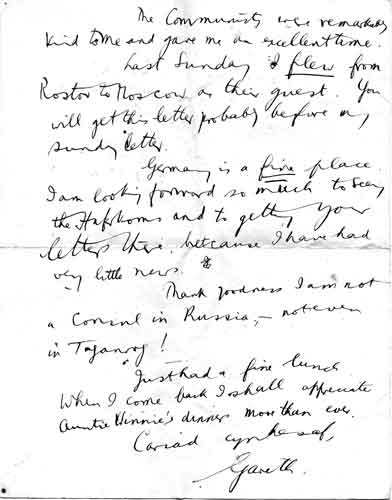 The Communists were remarkably
kind to me and gave me an excellent time.
Last Sunday I flew from
Rostov to Moscow as their guest. You
will get this letter probably before my
Sunday letter.
Germany is a fine place.
I am looking forward so much to seeing
the Haferkorns and to getting your
letters there, because I have had
very little news.
Thank goodness I am not
a Consul in Russia, – not even
in Taganrog!
Just had a fine lunch
When I come back I shall appreciate
Auntie Winnie's dinner more than ever.
Cariad cynhesaf,
Gareth.